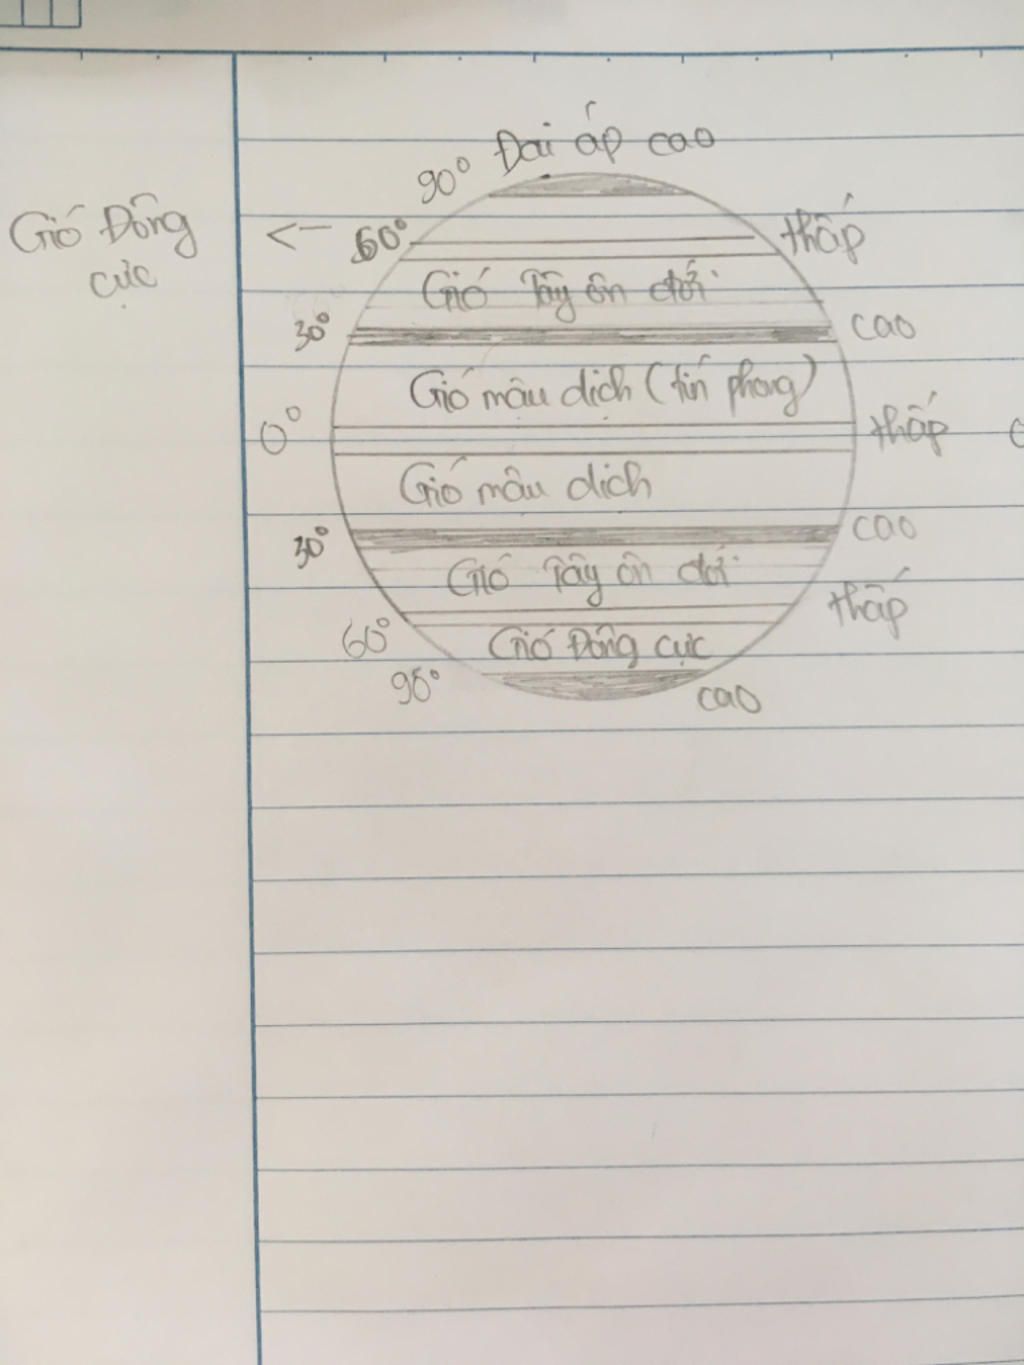 90° Đai áp cao
Gió Đông
cực
<- 60° thấp
Gió Tây ôn đới
30° cao
Gió mâu dịch (tín phong)
0° thấp
Gió mâu dịch
30° cao
Gió Tây ôn đới
thấp
60°
Gió Đông cực
90° cao